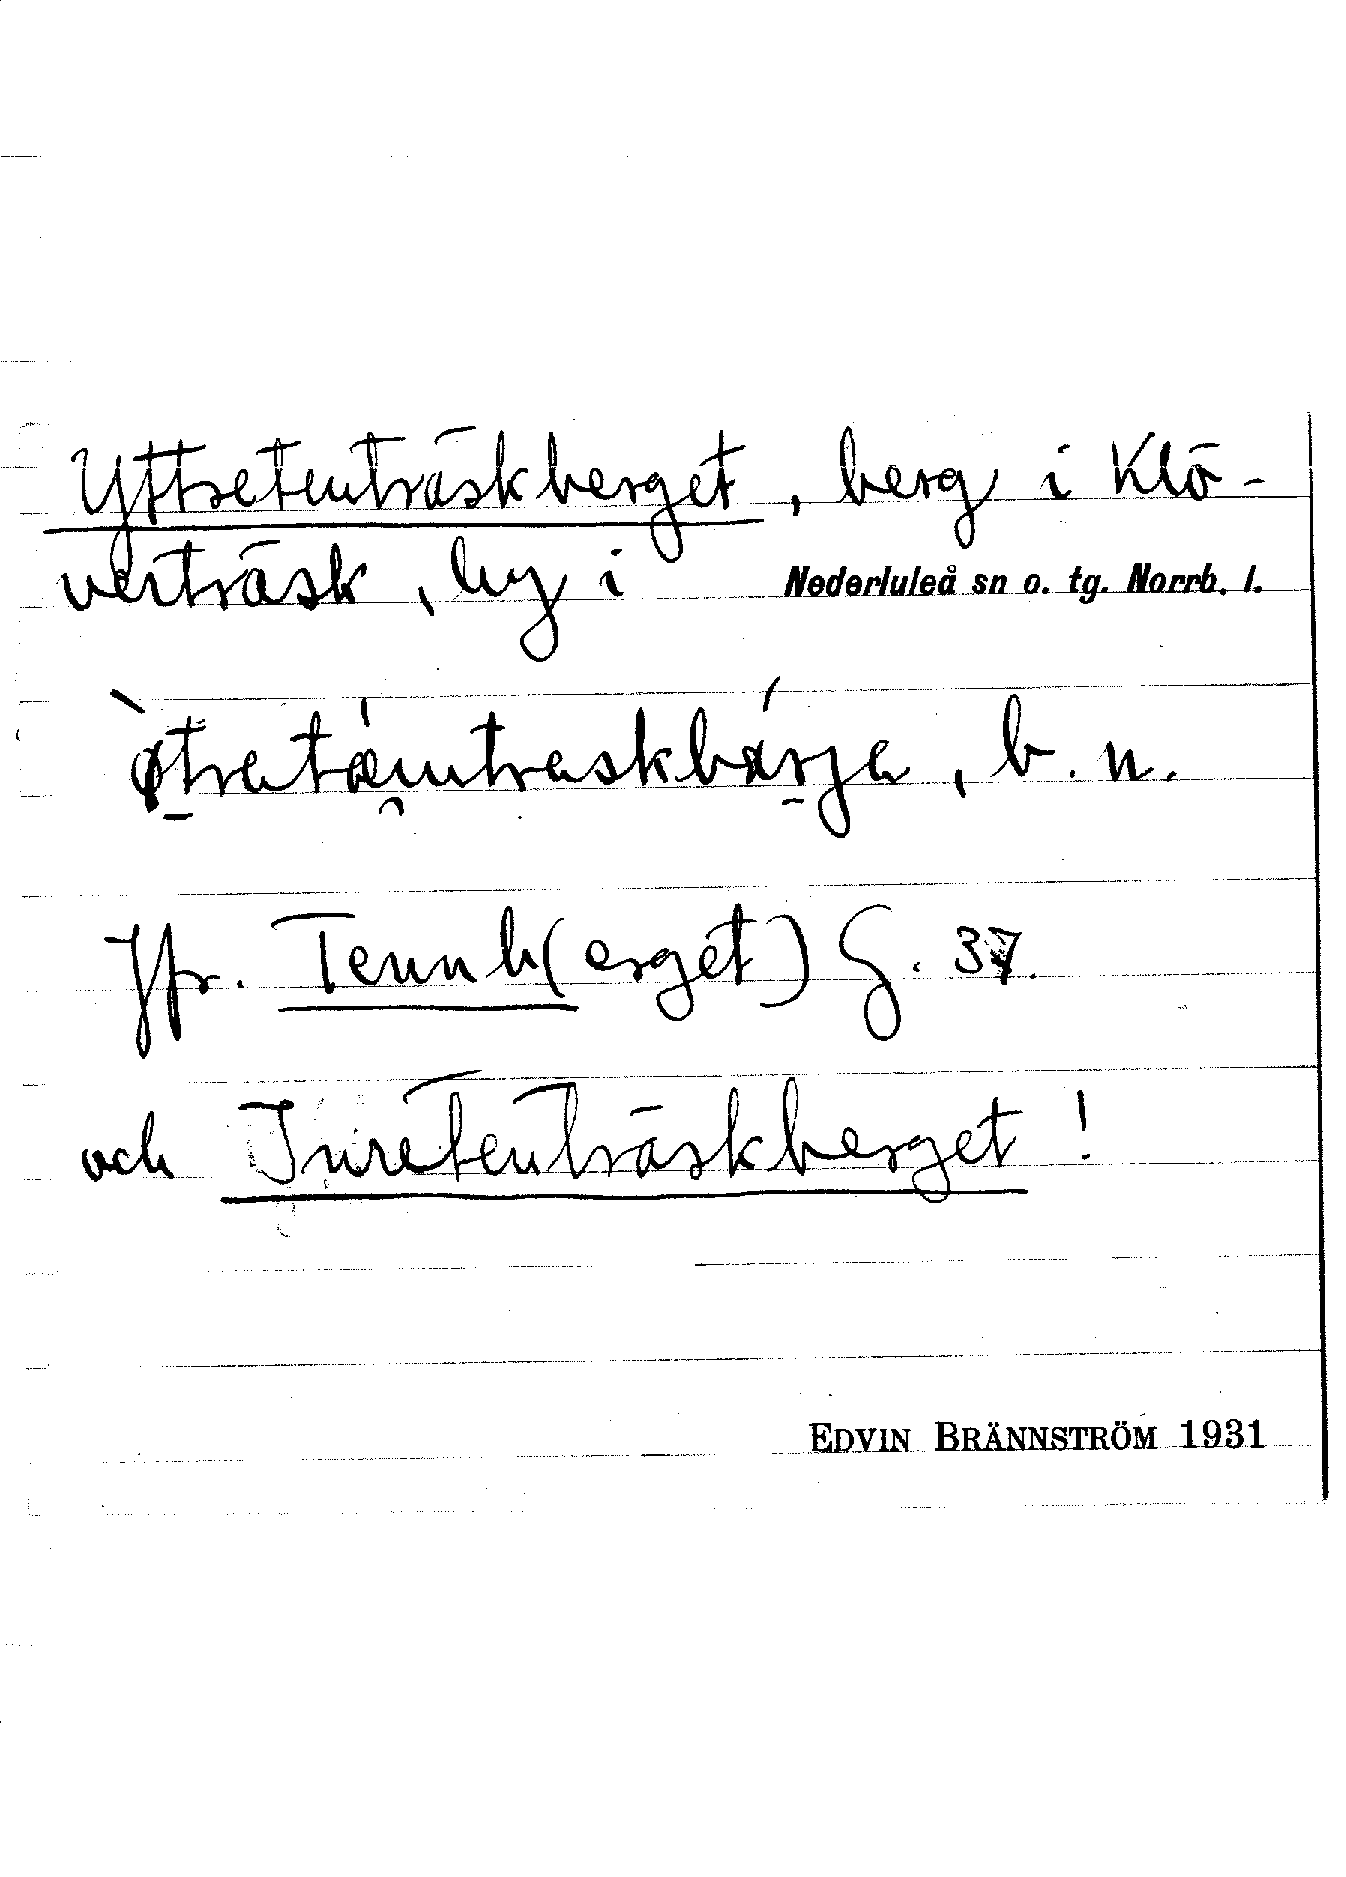 Yttretenträskberget, berg i Klö-
verträsk, by i Nederluleå sn o. tg. Norrb. l.
b. n.
Jfr. Tennb(erget) G. 37.
och Inretenträskberget!
EDVIN BRÄNNSTRÖM 1931